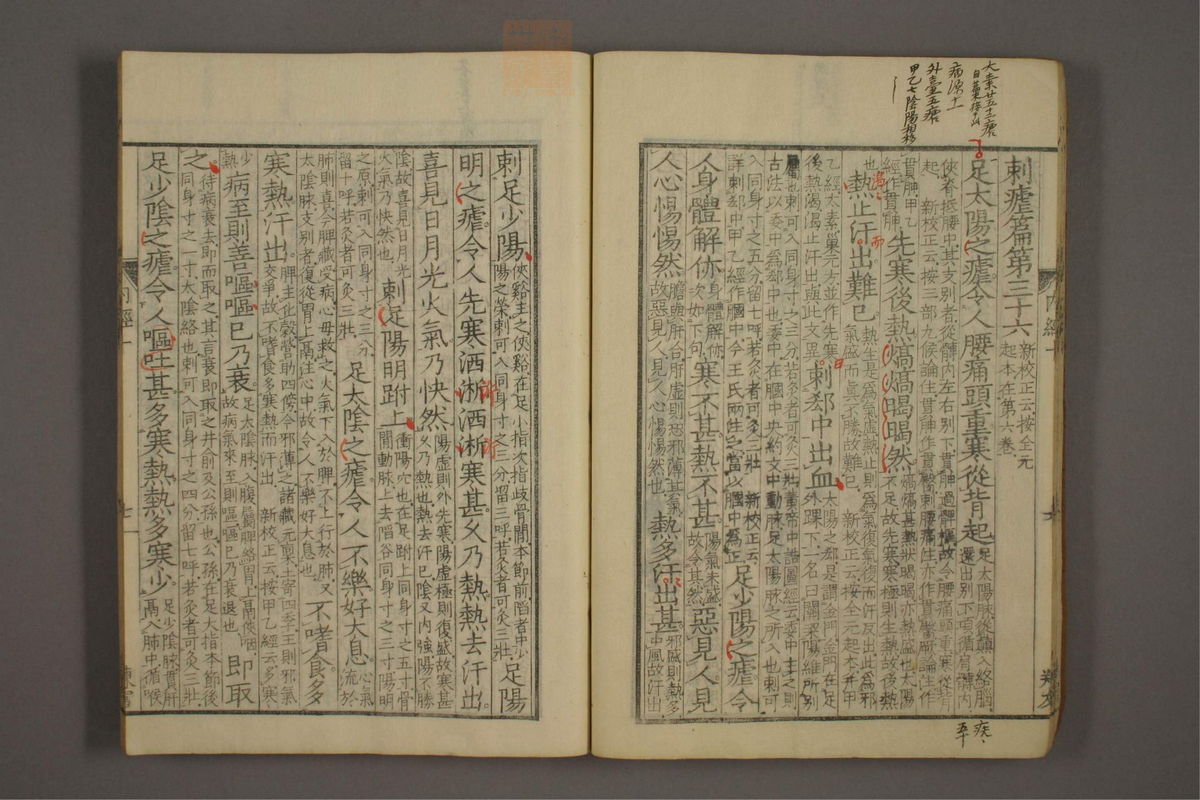 病源十一
外臺五瘧
甲乙七陰陽相移
刺瘧篇第三十六 新校正云按全元起本在第六卷
足太陽之瘧令人腰痛頭重寒從背起 足太陽脉從巔入絡腦還出別下項循肩髆內
俠脊抵腰中其支別者從髆內左右別下貫胂過髀樞故令腰痛頭重寒從背起 新校正云按三部九候論注貫胂作貫臀刺腰痛注亦作貫臀厥論注作
貫胂甲乙經作貫胂 先寒後熱熇熇暍暍然 熇熇甚熱狀暍暍亦熱盛也太陽不足故先寒寒極則生熱故後熱
也 熱止汗出難已 熱生是爲氣虛熱止則爲氣復氣復而汗反出此爲邪氣盛而眞不勝故難已 新校正云按全元起本并甲
乙經太素巢元方並作先寒後熱渴渴止汗出與此文異 刺郄中出血 太陽之郄是謂金門金門在足外踝下一名曰關梁陽維所別
屬也刺可入同身寸之三分若灸者可灸三壯黃帝中誥圖經云委中主之則古法以委中爲郄中也委中在膕中央約文中動脉足太陽脉之所入也刺可
入同身寸之五分留七呼若灸者可灸三壯 新校正云詳刺郄中甲乙經作膕中今王氏兩注之當以膕中爲正 足少陽之瘧令
人身體解㑊 身體解㑊次如下句 寒不甚熱不甚 陽氣未盛故令其然 惡見人見
人心惕惕然 膽與肝合肝虛則恐邪薄其氣故惡見人見人心惕惕然也 熱多汗出甚 邪盛則熱多中風故汗出
刺足少陽 俠谿主之俠谿在足小指次指歧骨間本節前陷者中少陽之滎刺可入同身寸之三分留三呼若灸者可灸三壯 足陽
明之瘧令人先寒洒淅洒淅寒甚久乃熱熱去汗出
喜見日月光火氣乃快然 陽虛則外先寒陽虛極則復盛故寒甚久乃熱也熱去汗已陰又內強陽不勝
陰故喜見日月光火氣乃快然也 刺足陽明跗上 衝陽穴也在足跗上同身寸之五寸骨間動脉上去陷谷同身寸之三寸陽明
之原刺可入同身寸之三分留十呼若灸者可灸三壯 足太陰之瘧令人不樂好大息 心氣流於
肺則喜今脾藏受病心母救之火氣下入於脾不上行於肺又太陰脉支別者復從胃上鬲注心中故令人不樂好大息也 不嗜食多
寒熱汗出 脾主化穀營助四傍今邪薄之諸藏无稟土寄四季王則邪氣交爭故不嗜食多寒熱而汗出 新校正云按甲乙經云多寒
少熱 病至則善嘔嘔已乃衰 足太陰脉入腹屬脾絡胃上鬲俠咽故病氣來至則嘔嘔已乃衰退也 即取
之 待病衰去即而取之其言衰即取之井俞及公孫也公孫在足大指本節後同身寸之一寸太陰絡也刺可入同身寸之四分留七呼若灸者可灸三壯
足少陰之瘧令人嘔吐甚多寒熱熱多寒少 足少陰脉貫肝鬲入肺中循喉